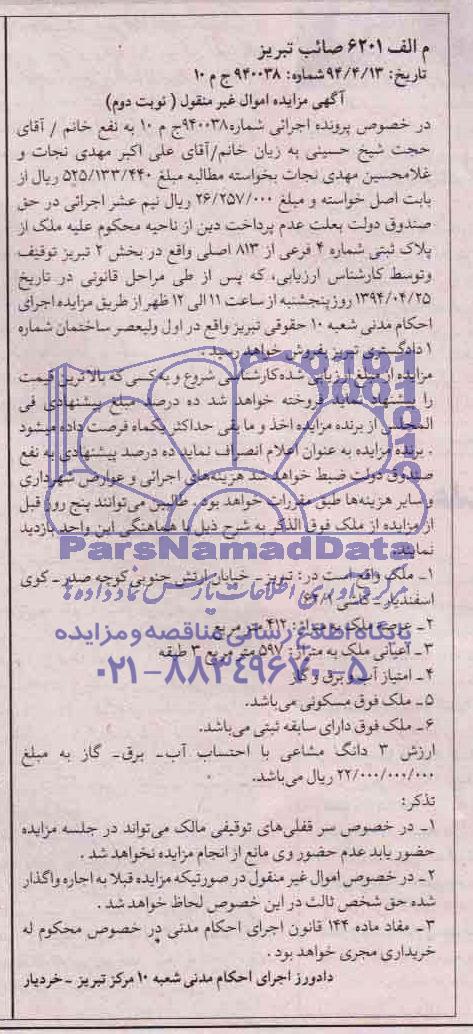 م الف ۶۲۰۱ صائب تبریز
تاریخ: ۹۴/۴/۱۳ شماره: ۹۴۰۰۳۸ ج م ۱۰
آگهی مزایده اموال غیر منقول ( نوبت دوم)
در خصوص پرونده اجرائی شماره ۹۴۰۰۳۸ج م ۱۰ به نفع خانم / آقای
حجت شیخ حسینی به زیان خانم/آقای علی اکبر مهدی نجات و
غلامحسین مهدی نجات بخواسته مطالبه مبلغ ۵۲۵/۱۳۳/۴۴۰ ریال از
بابت اصل خواسته و مبلغ ۲۶/۲۵۷/۰۰۰ ریال نیم عشر اجرائی در حق
صندوق دولت بعلت عدم پرداخت دین از ناحیه محکوم علیه ملک از
پلاک ثبتی شماره ۴ فرعی از ۸۱۳ اصلی واقع در بخش ۲ تبریز توقیف
وتوسط کارشناس ارزیابی، که پس از طی مراحل قانونی در تاریخ
۱۳۹۴/۰۴/۲۵ روز پنجشنبه از ساعت ۱۱ الی ۱۲ ظهر از طریق مزایده اجرای
احکام مدنی شعبه ۱۰ حقوقی تبریز واقع در اول ولیعصر ساختمان شماره
۱ دادگستری تبریز بفروش خواهد رسید .
مزایده از مبلغ ارزیابی شده کارشناسی شروع و به کسی که بالاترین قیمت
را پیشنهاد نماید فروخته خواهد شد ده درصد مبلغ پیشنهادی فی
المجلس از برنده مزایده اخذ و ما بقی حداکثر یکماه فرصت داده میشود
. برنده مزایده به عنوان اعلام انصراف نماید ده درصد پیشنهادی به نفع
صندوق دولت ضبط خواهد شد هزینه‌های اجرائی و عوارض شهرداری
و سایر هزینه‌ها طبق مقررات خواهد بود . طالبین می‌توانند پنج روز قبل
از مزایده از ملک فوق الذکر به شرح ذیل با هماهنگی این واحد بازدید
نمایند.
۱ـ ملک واقع است در : تبریز ـ خیابان ارتش جنوبی کوچه صدر ـ کوی
اسفندیار ـ کاشی
۲ـ عرصه ملک به متراژ: ۴۱۲ متر مربع
۳ـ اعیانی ملک به متراژ: ۵۹۷ متر مربع ۳ طبقه
۴ـ امتیاز آب و برق و گاز
۵ـ ملک فوق مسکونی می‌باشد.
۶ـ ملک فوق دارای سابقه ثبتی می‌باشد.
ارزش ۳ دانگ مشاعی با احتساب آب ـ برق ـ گاز به مبلغ
۲۲/۰۰۰/۰۰۰/۰۰۰ ریال می‌باشد.
تذکر:
۱ـ در خصوص سر قفلی‌های توقیفی مالک می‌تواند در جلسه مزایده
حضور یابد عدم حضور وی مانع از انجام مزایده نخواهد شد .
۲ـ در خصوص اموال غیر منقول در صورتیکه مزایده قبلا به اجاره واگذار
شده حق شخص ثالث در این خصوص لحاظ خواهد شد .
۳ـ مفاد ماده ۱۴۴ قانون اجرای احکام مدنی در خصوص محکوم له
خریداری مجری خواهد بود .
دادورز اجرای احکام مدنی شعبه ۱۰ مرکز تبریز ـ خردیار
ParsNamadData
پایگاه اطلاع رسانی مناقصه و مزایده
۰۲۱-۸۸۳۴۹۶۷۰-۵